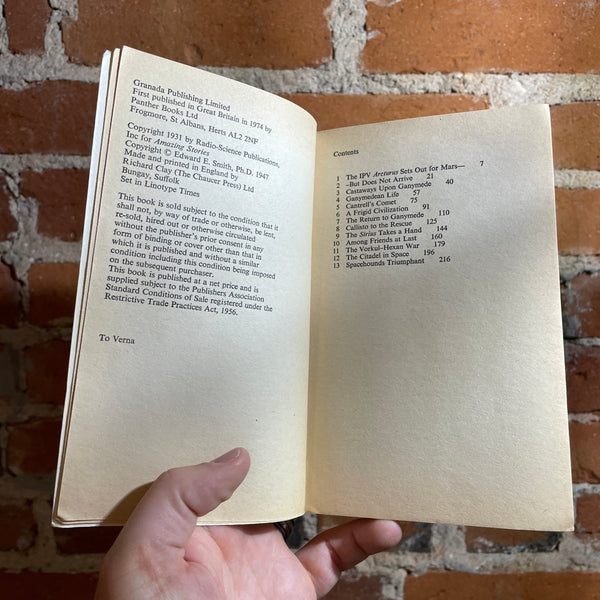 Granada Publishing Limited
First published in Great Britain in 1974 by
Panther Books Ltd
Frogmore, St Albans, Herts AL2 2NF
Copyright 1931 by Radio-Science Publications,
Inc for Amazing Stories
Copyright © Edward E. Smith, Ph.D. 1947
Made and printed in England by
Richard Clay (The Chaucer Press) Ltd
Bungay, Suffolk
Set in Linotype Times
This book is sold subject to the condition that it
shall not, by way of trade or otherwise, be lent,
re-sold, hired out or otherwise circulated
without the publisher's prior consent in any
form of binding or cover other than that in
which it is published and without a similar
condition including this condition being imposed
on the subsequent purchaser.
This book is published at a net price and is
supplied subject to the Publishers Association
Standard Conditions of Sale registered under the
Restrictive Trade Practices Act, 1956.
To Verna
Contents
1 The IPV Arcturus Sets Out for Mars— 7
2 –But Does Not Arrive 21
3 Castaways Upon Ganymede 40
4 Ganymedean Life 57
5 Cantrell's Comet 75
6 A Frigid Civilization 91
7 The Return to Ganymede 110
8 Callisto to the Rescue 125
9 The Sirius Takes a Hand 144
10 Among Friends at Last 160
11 The Vorkul–Hexan War 179
12 The Citadel in Space 196
13 Spacehounds Triumphant 216